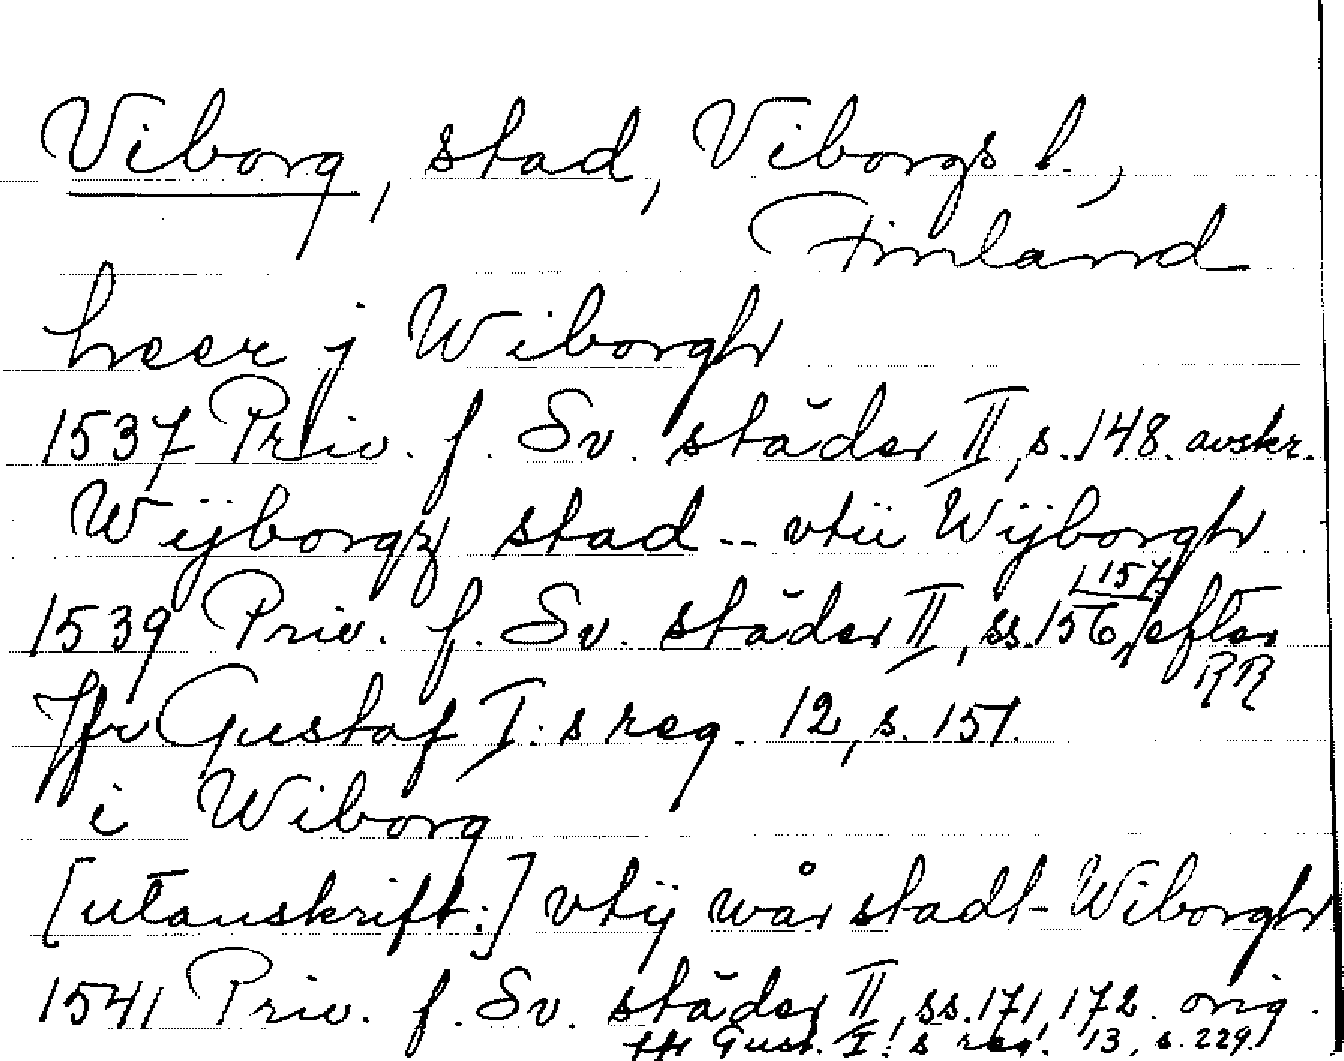 Viborg, stad, Viborgs l.,
Finland
heer j Wiborgh
1537 Priv. f. Sv. städer II, s. 148. avskr.
Wijborgz stad -- vtii Wijborgh
1539 Priv. f. Sv. städer II, ss. 156, 157, efter RR
Jfr Gustaf I:s reg. 12, s. 151.
i Wiborg
[utanskrift:] vtij wår stadt Wiborgh
1541 Priv. f. Sv. städer II, ss. 171, 172. orig.
Jfr Gust. I:s reg. 13, s. 229.